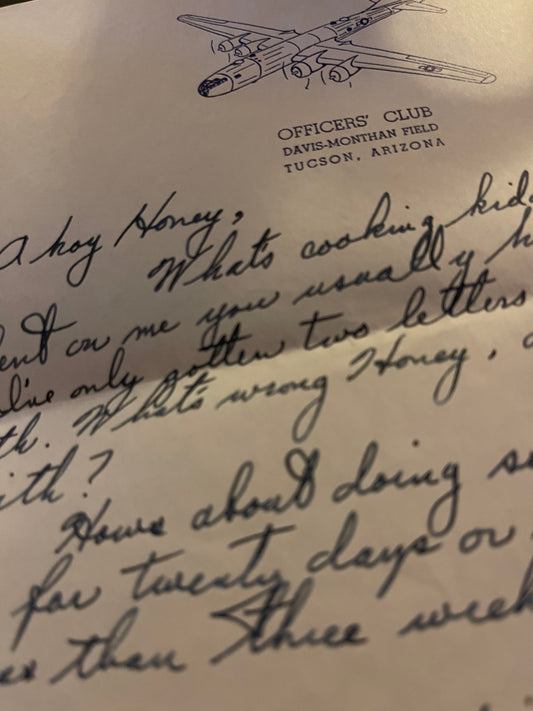 OFFICERS' CLUB
DAVIS-MONTHAN FIELD
TUCSON, ARIZONA
Ahoy Honey,
Whats cooking
on me you usually
only gotten two letters
What's wrong Honey,
Hows about doing
for twenty days or
than three